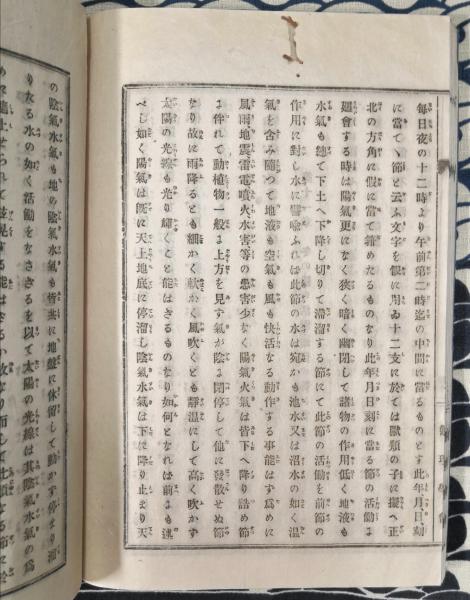 每日夜の十二時より午前第二時迄の中間に當るものとす此年月日刻
に當て丶節と云ふ文字を假に用ゐ十二支に於ては獸類の子に擬へ正
北の方角に假に當て籍めたるものなり此年月日刻に當る節の活働は
廻會する時は陽氣更になく狹く暗く幽閉して諸物の作用低く地液も
水氣も總て下土へ下降し切りて滯溜する節にて此節の活働を前節の
作用に對し水に譬喩ふれは此節の水は宛かも池水又は沼水の如く溫
氣を含み隨つて地液も空氣も風も快活なる動作する事能はす爲めに
風雨地震雷電噴火水害等の患害少なく陽氣火氣は皆下へ降り詰め節
に伴れて動植物一般よ上方を見す氣が陰よ閉停して他に發散せぬ節
なり故に雨降るとも細かく軟かく風吹くとも靜溫にして高く吹かす
太陽の光線も光り輝くこと能はさるものなり如何となれは前よも述
べし如く陽氣は既に天上地底に停溜し陰氣水氣は下に降り止まり天
の陰氣水氣も地の陰氣水氣も皆共に地盤に休留して動かす停まり溜
りたる水の如く活働をなさゝるを以て太陽の光線は其陰氣水氣の爲